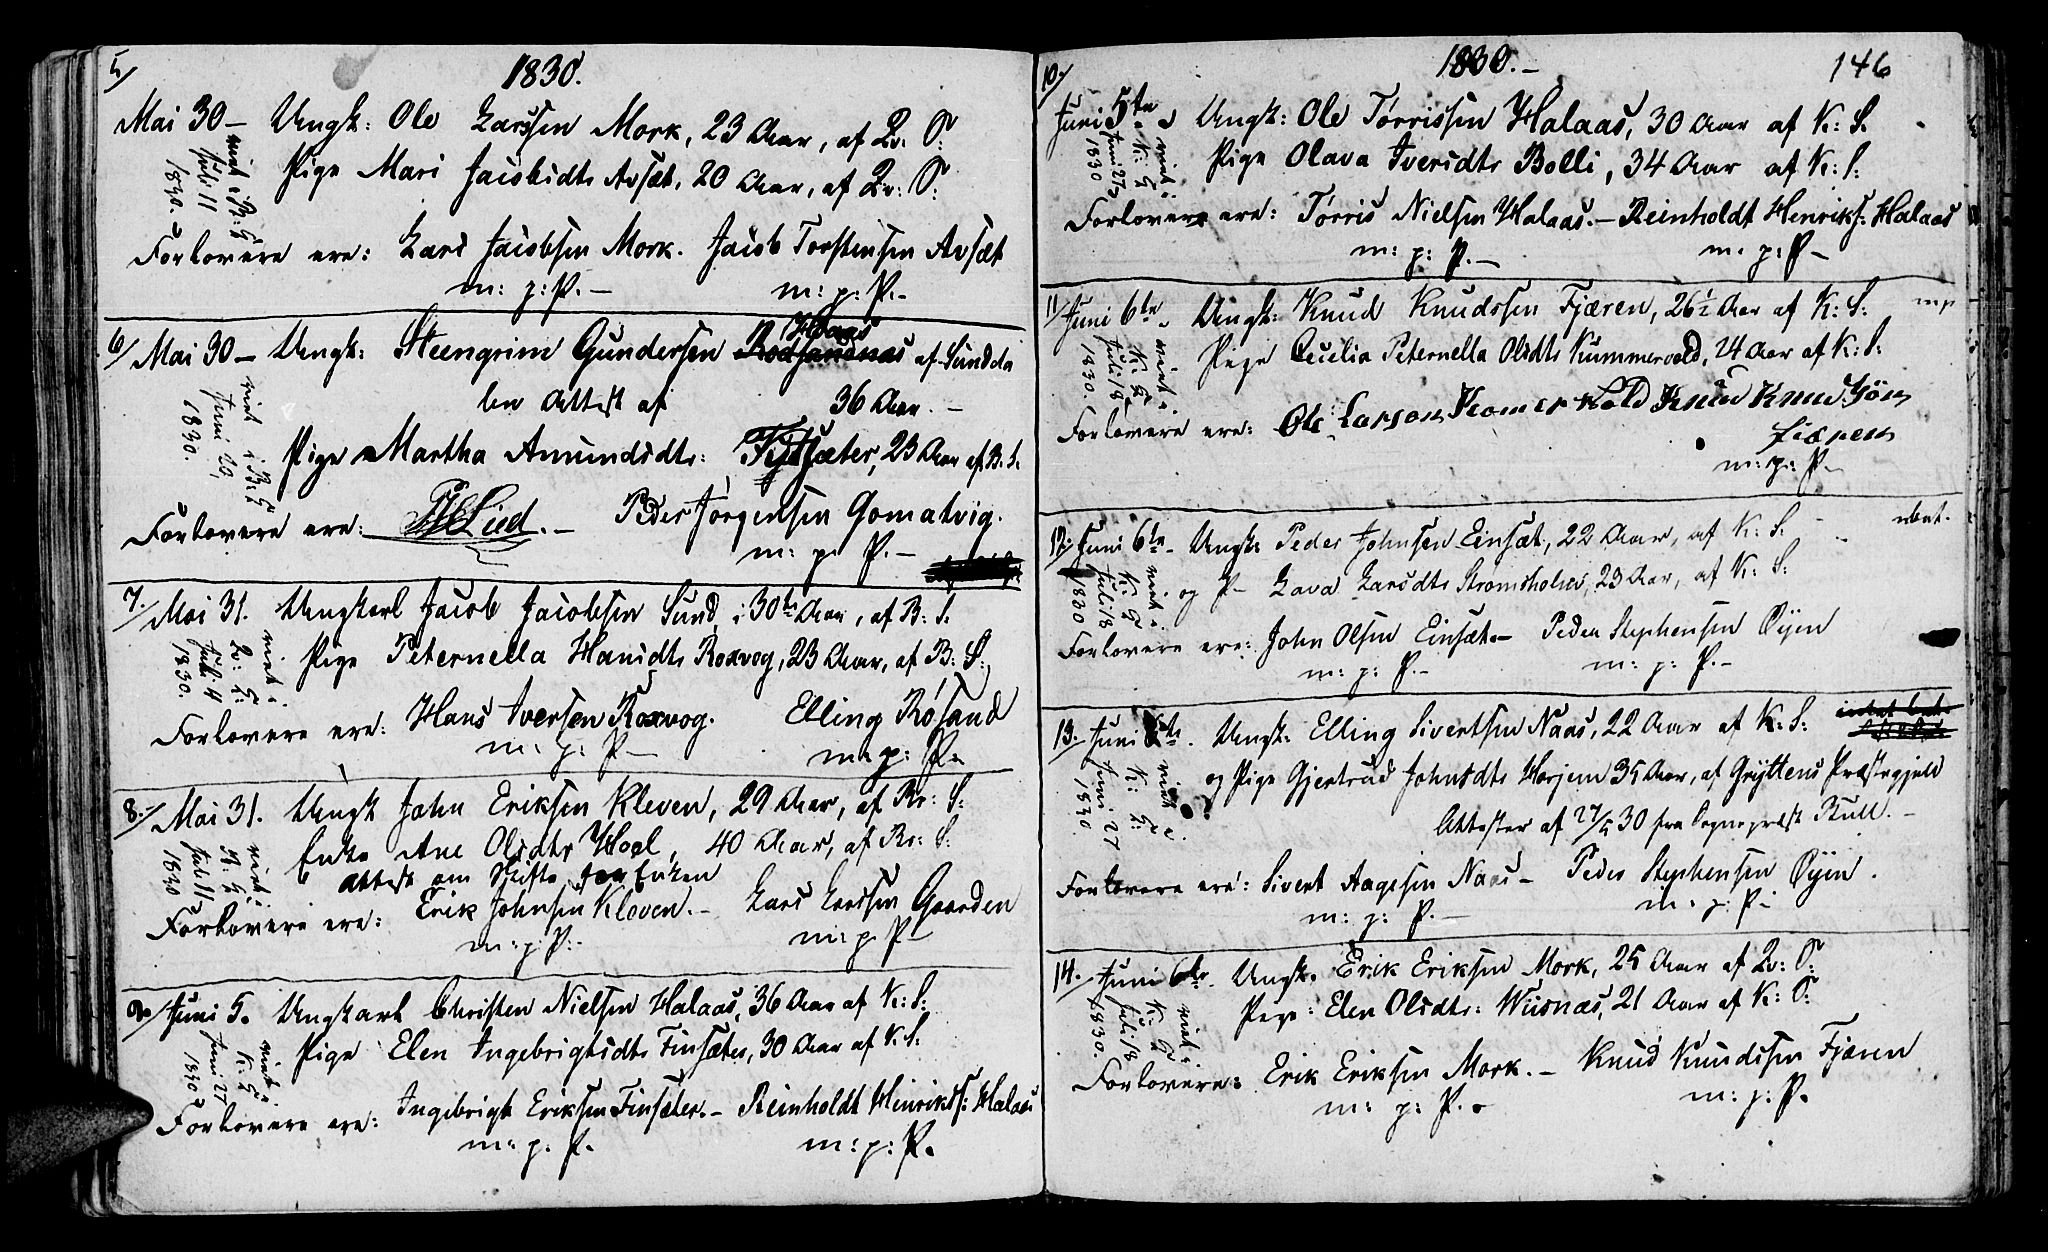 5/
1830.
Mai 30 – Ungk: Ole Larssen Mork, 23 Aar, af Qv. S:
Pige Mari Jacobsdtr Avsæt, 20 Aar, af Qv: S:
viet i
Juli 11
1830.
Forlovere ere: Lars Jacobsen Mork. Jacob Torstensen Avsæt
m: p: P. – m: p: P. –
6/ Mai 30 – Ungk: Steengrim Gundersen Hoaas
af Sundda
len Attest af 36 Aar. –
Pige Martha Amundsdtr: 23 Aar af B: S.
viet i B: K
Juni 20,
1830.
Forlovere ere: Lied. – Peder Jörgensen Gomalvig.
m: p: P. –
7. Mai 31. Ungkarl Jacob Jacobsen Sund, i 30te Aar, af B: S.
Pige Peternella Hansdtr Roxvog, 23 Aar, af B: S:
viet i
Qv: K:
Juli 4
1830.
Forlovere ere: Hans Iversen Roxvog. Elling Rösand
m: p: P – m. p: P.
8. Mai 31. Ungk John Eriksen Kleven, 29 Aar, af Br: S:
Enke Ane Olsdtr Hoel, 40 Aar, af Br: S:
Attest om Skifte for Enken
viet i
Juli 11,
1830
Forlovere ere: Erik Johnsen Kleven. – Lars Larssen Gaarden
m: p: P: m: p P –
9. Juni 5. Ungkarl Christen Nielsen Halaas, 36 Aar af K: S:
Pige Elen Ingebrigtsdtr Finsæter, 30 Aar af K. S:
viet i
K: K:
Juni 27
1830
Forlovere ere: Ingebrigt Eriksen Finsæter. – Reinholdt Henriks: Halaas
m: p: P. m: p: P.
1830. –
146
10.
Juni 5te Ungk: Ole Törrissen Halaas, 30 Aar af K: S.
Pige Olava Iversdtr Bolli, 34 Aar af K: S:
viet i
K: K
Juni 27
1830
Forlovere ere: Törris Nielsen Halaas. – Reinholdt Henriks: Halaas
m: p: P. – m. p: P –
11/ Juni 6te – Ungk: Knud Knudssen Fjæren, 26½ Aar af K: S:
Pige Cecilia Peternella Olsdtr Kummervold, 24 Aar af K: S:
viet i
K: K
Juli 18
1830.
Forlovere ere: Ole Larson Knud Knudsön
Fiæren
m: p: P. –
12. Juni 6te – Ungk Peder Johnsen Einsæt, 22 Aar, af K: S.
og P – Lava Larsdtr Strömsholm, 23 Aar, af K: S:
viet i
K: K
Juli 18
1830
Forlovere ere: John Olsen Einsæt – Peder Stephensen Öyen
m: p: P. – m: p: P. –
13. Juni 6te. Ungk: Elling Sivertsen Naas, 22 Aar af K: S:
og Pige Gjertrud Johnsdtr Horjem 35 Aar, af Gryttens Præstegjeld
Attester af 27/5 30 fra Sognepræst Bull. –
viet i
K: K:
Juni 27
1830
Forlovere ere: Sivert Aagesen Naas – Peder Stephensen Öyen.
m: p: P. – m: p: P –
14. Juni 6te. Ungk. Erik Eriksen Mork, 25 Aar af Qv: S:
Pige: Elen Olsdtr: Wiisnæs, 21 Aar af K: S:
viet i
K: K
Juli 18
1830.
Forlovere: Erik Eriksen Mork. – Knud Knudssen Fjæren
m: p: P. m: p: P.